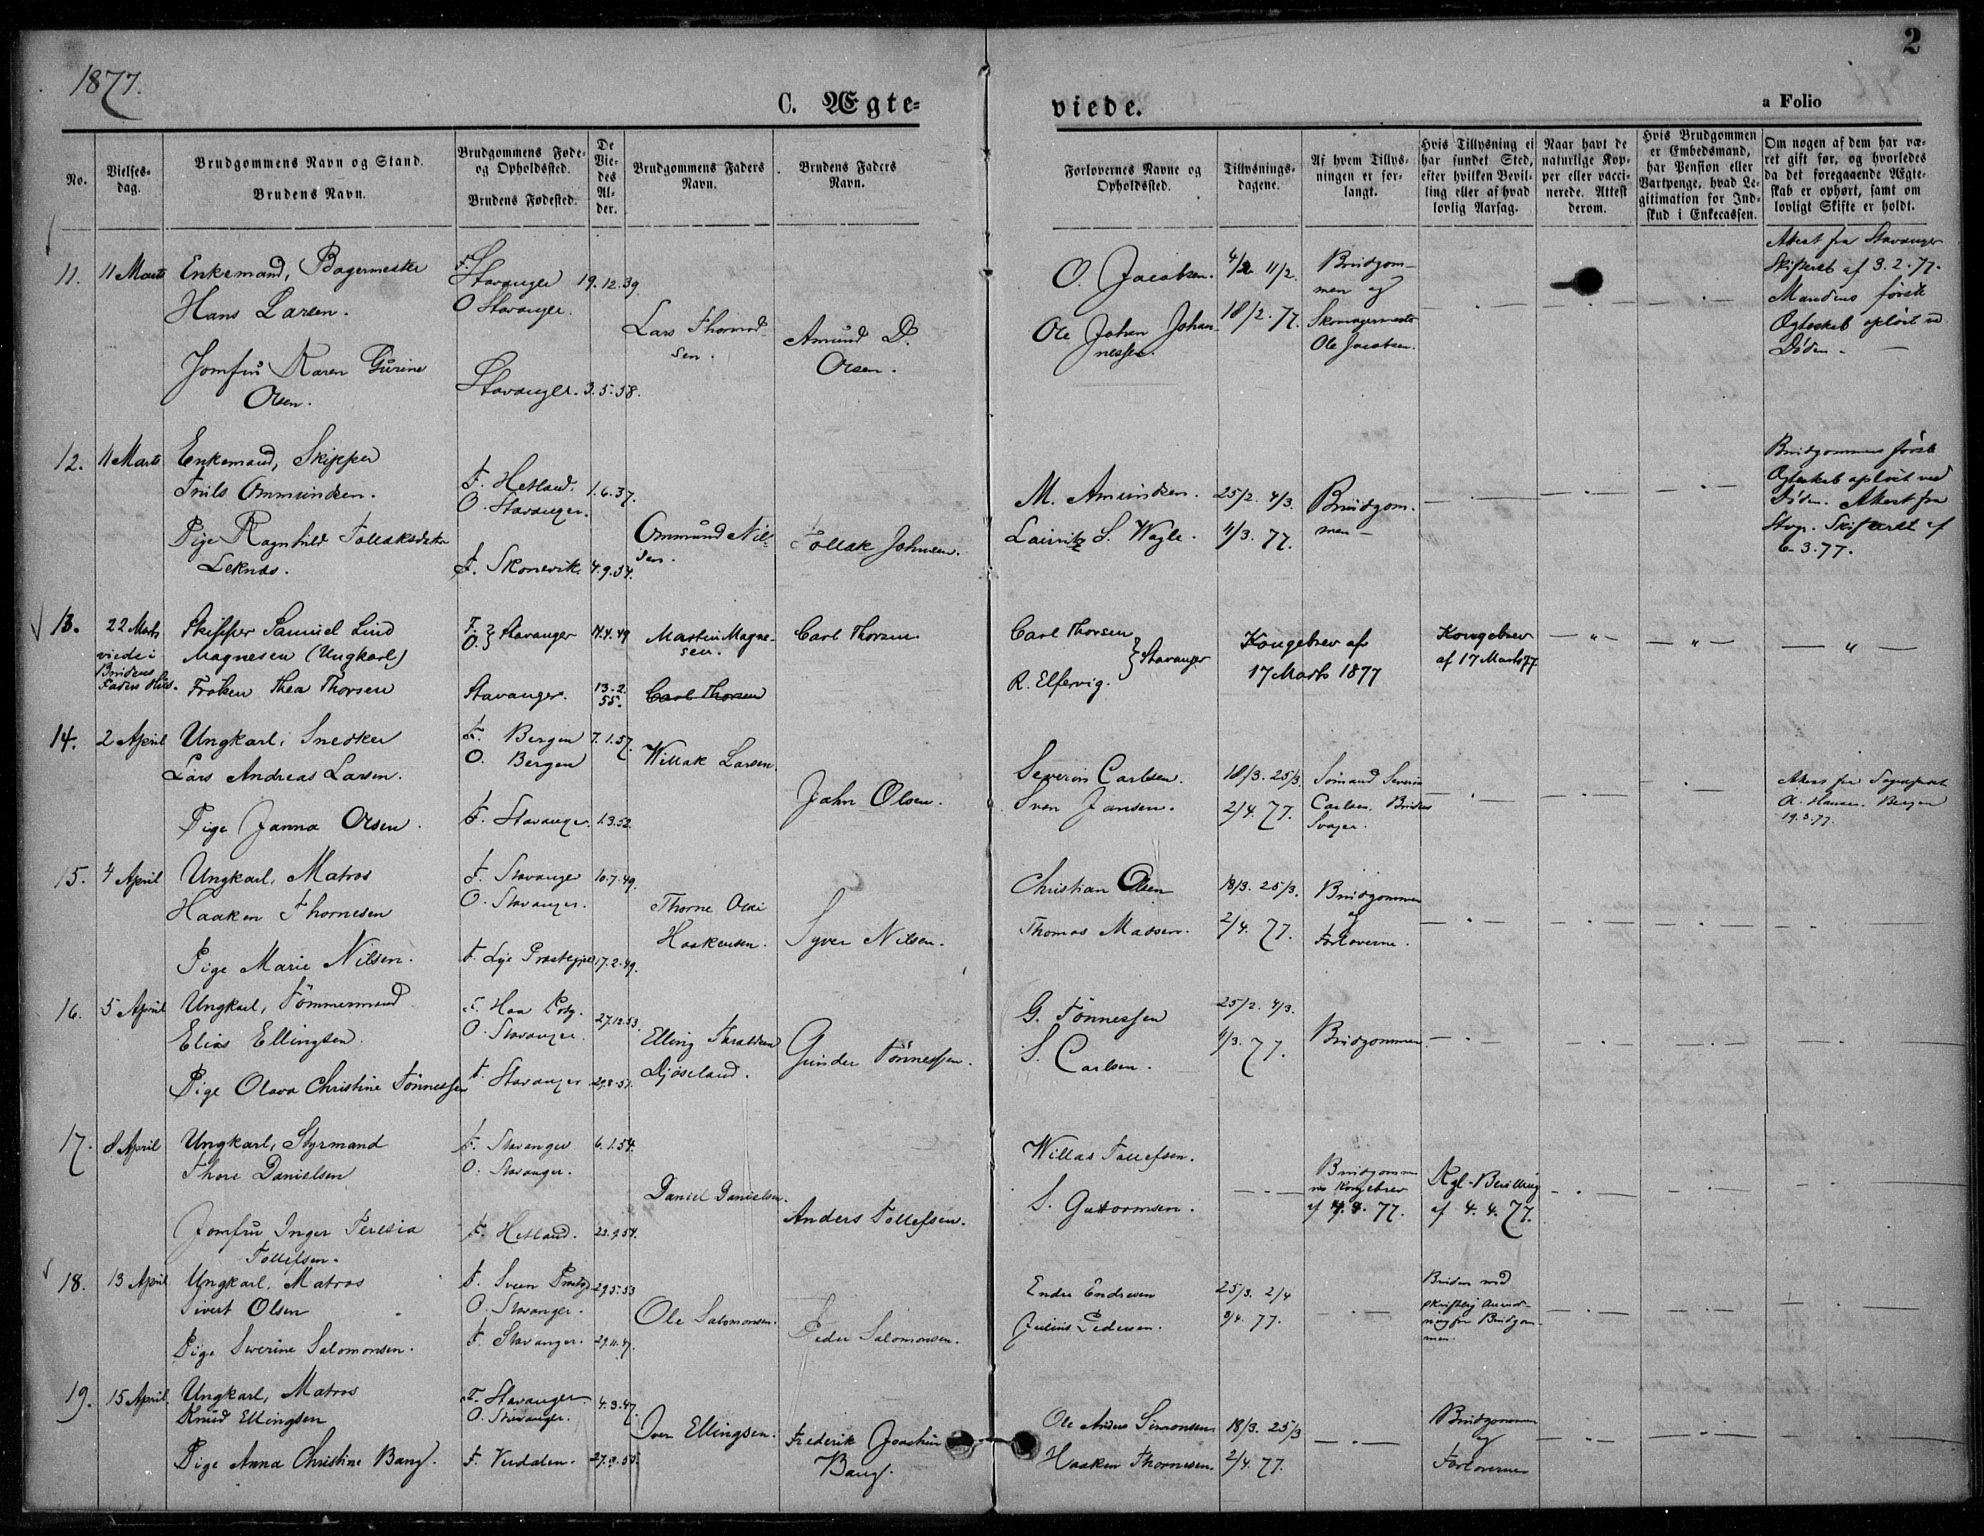 1877.
2
C. Ægte-
viede.
a Folio
No.
Vielses-
dag.
Brudgommens Navn og Stand.
Brudens Navn.
Brudgommens Føde-
og Opholdssted.
Brudens Fødested.
De
Vie-
des
Al-
der.
Brudgommens Faders
Navn.
Brudens Faders
Navn.
Forlovernes Navne og
Opholdssted.
Tillysnings-
dagene.
Af hvem Tillys-
ningen er for-
langt.
Hvis Tillysning ei
har fundet Sted,
efter hvilken Bevil-
ling eller af hvad
lovlig Aarsag.
Naar havt de
naturlige Kop-
per eller vacci-
nerede. Attest
derom.
Hvis Brudgommen
er Embedsmand,
har Pension eller
Vartpenge, hvad Le-
gitimation for Ind-
skud i Enkecassen.
Om nogen af dem har væ-
ret gift før, og hvorledes
da det foregaaende Ægte-
skab er ophørt, samt om
lovligt Skifte er holdt.
11. 11 Marts Enkemand, Bagermester
Hans Larsen.
Jomfru Karen Gurine
Olsen.
F. Stavanger 19.12.39.
O Stavanger.
Stavanger. 3.5.58.
Lars Thormod-
sen.
Amund D.
Olsen.
O. Jacobsen.
Ole Johan Johan-
nessen.
4/2 11/2
18/2. 77.
Brudgom-
men og
Skomagermester
Ole Jacobsen.
Attest fra Stavanger
Skifteret af 3.2.77.
Mandens første
Ægteskab opløst v
Døden.
12. 11 Marts Enkemand, Skipper
Nils Ommundsen.
Pige Ragnhild Tollaksdatter
Leknæs.
F. Hetland. 1.6.37.
O. Stavanger.
F. Skonevik 4.9.54.
Ommund Nil-
sen.
Tollak Johnsen.
M. Amundsen.
Lauritz S. Wagle.
25/2. 4/3.
11/3. 77.
Brudgom-
men
Brudgommens første
Ægteskab opløst ved
Døden. Attest fra
Stvgr. Skifteret af
6-3.77.
13. 22 Marts
viede i
Brudens
Faders Hus.
Skipper Samuel Lind
Magnesen (Ungkarl)
Frøken Thea Thorsen
F. } Stavanger
O.
Stavanger. 13.2.
55.
Martin Magne-
sen.
Carl Thorsen
Carl Thorsen.
Carl Thorsen } Stavanger
R. Elfervig.
Kongebrev af
17 Marts 1877
Kongebrev
af 17 Marts 77.
14. 2 April Ungkarl, Snedker
Lars Andreas Larsen.
Pige Janna Olsen.
F. Bergen 7.1.57.
O. Bergen
F. Stavanger. 1.3.52.
Willak Larsen.
John Olsen.
Severin Carlsen.
Sven Jansen.
18/3. 25/3.
2/4. 77.
Sømand Severin
Carlsen. Brudens
Svoger.
Attest fra Sognepræst
Hansen. Bergen
19.3.77.
15. 4 April Ungkarl, Matros
Haaken Thornesen
Pige Marie Nilsen.
F. Stavanger 10.7.49.
O. Stavanger.
F. Lye Præstegjeld 17.2.49.
Thorne Olai
Haakensen.
Syver Nilsen.
Christian Olsen
Thomas Madsen.
18/3. 25/3.
2/4. 77.
Brudgommen
og
Forloverne.
16. 5 April Ungkarl, Tømmermand
Elias Ellingsen.
Pige Olava Christine Tønnessen
F. Haa Pstg. 27.12.53.
O. Stavanger.
F. Stavanger. 29.8.51.
Elling Thraldsen
Djøseland.
Gunder Tønnessen.
G. Tønnessen
S. Carlsen.
25/2. 4/3.
11/3. 77.
Brudgommen.
17. 8 April Ungkarl, Styrmand
Thore Danielsen
Jomfru Inger Teresia
Tollefsen.
F. Stavanger 6.1.54.
O. Stavanger.
F. Hetland. 22.9.54.
Daniel Danielsen.
Anders Tollefsen.
Willas Tollefsen.
S. Guttormsen.
Brudgommen
Kongebrev
af 4.4.77.
Kgl. Bevilling
af 4.4.77.
18. 13 April Ungkarl, Matros
Sivert Olsen
Pige Severine Salomonsen.
F. Sveen Prstgj. 29.5.53
O. Stavanger.
F. Stavanger. 29.11.47.
Ole Salomonsen.
Peder Salomonsen.
Endre Endresen
Julius Pedersen.
25/3. 2/4
8/4. 77.
Bruden med
skriftlig Anmod-
ning fra Brudgom-
men.
19. 15 April. Ungkarl, Matros
Knud Ellingsen
Pige Anna Christine Bang.
F. Stavanger. 4.3.47.
O. Stavanger.
F. Verdalen. 27.9.55.
Iver Ellingsen.
Frederik Joachim
Bang.
Ole Anders Simonsen
Haaken Thornesen.
18/3. 25/3
2/4. 77.
Brudgommen
og
Forloverne